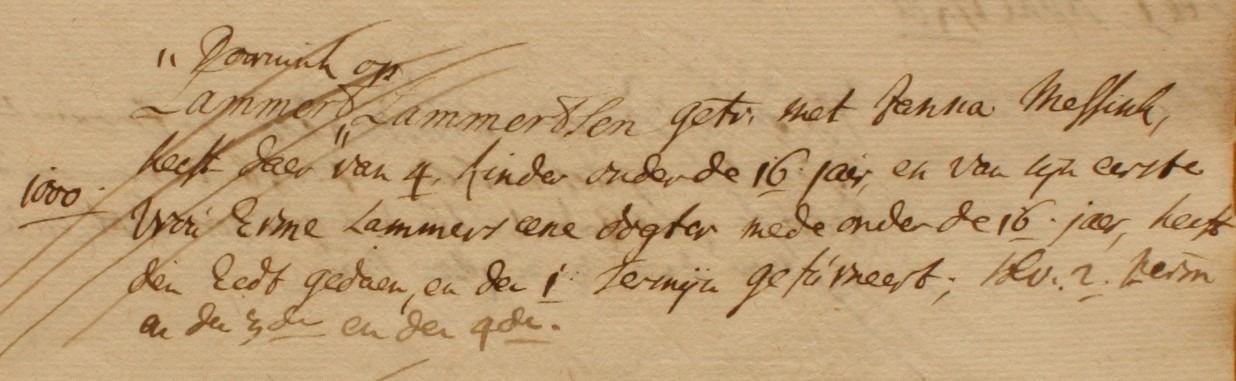 " Roerinck op
Lammert Lammertsen getr. met Janna Messink,
heeft daer " van 4. kinder onder de 16 jaer, en van syn eerste
1000. vrou Erme Lammers eene dogter mede onder de 16. jaer, heeft
den Eedt gedaen, en den 1 Termyn gefurneert; 2. Term
en den 3den en den 4den.